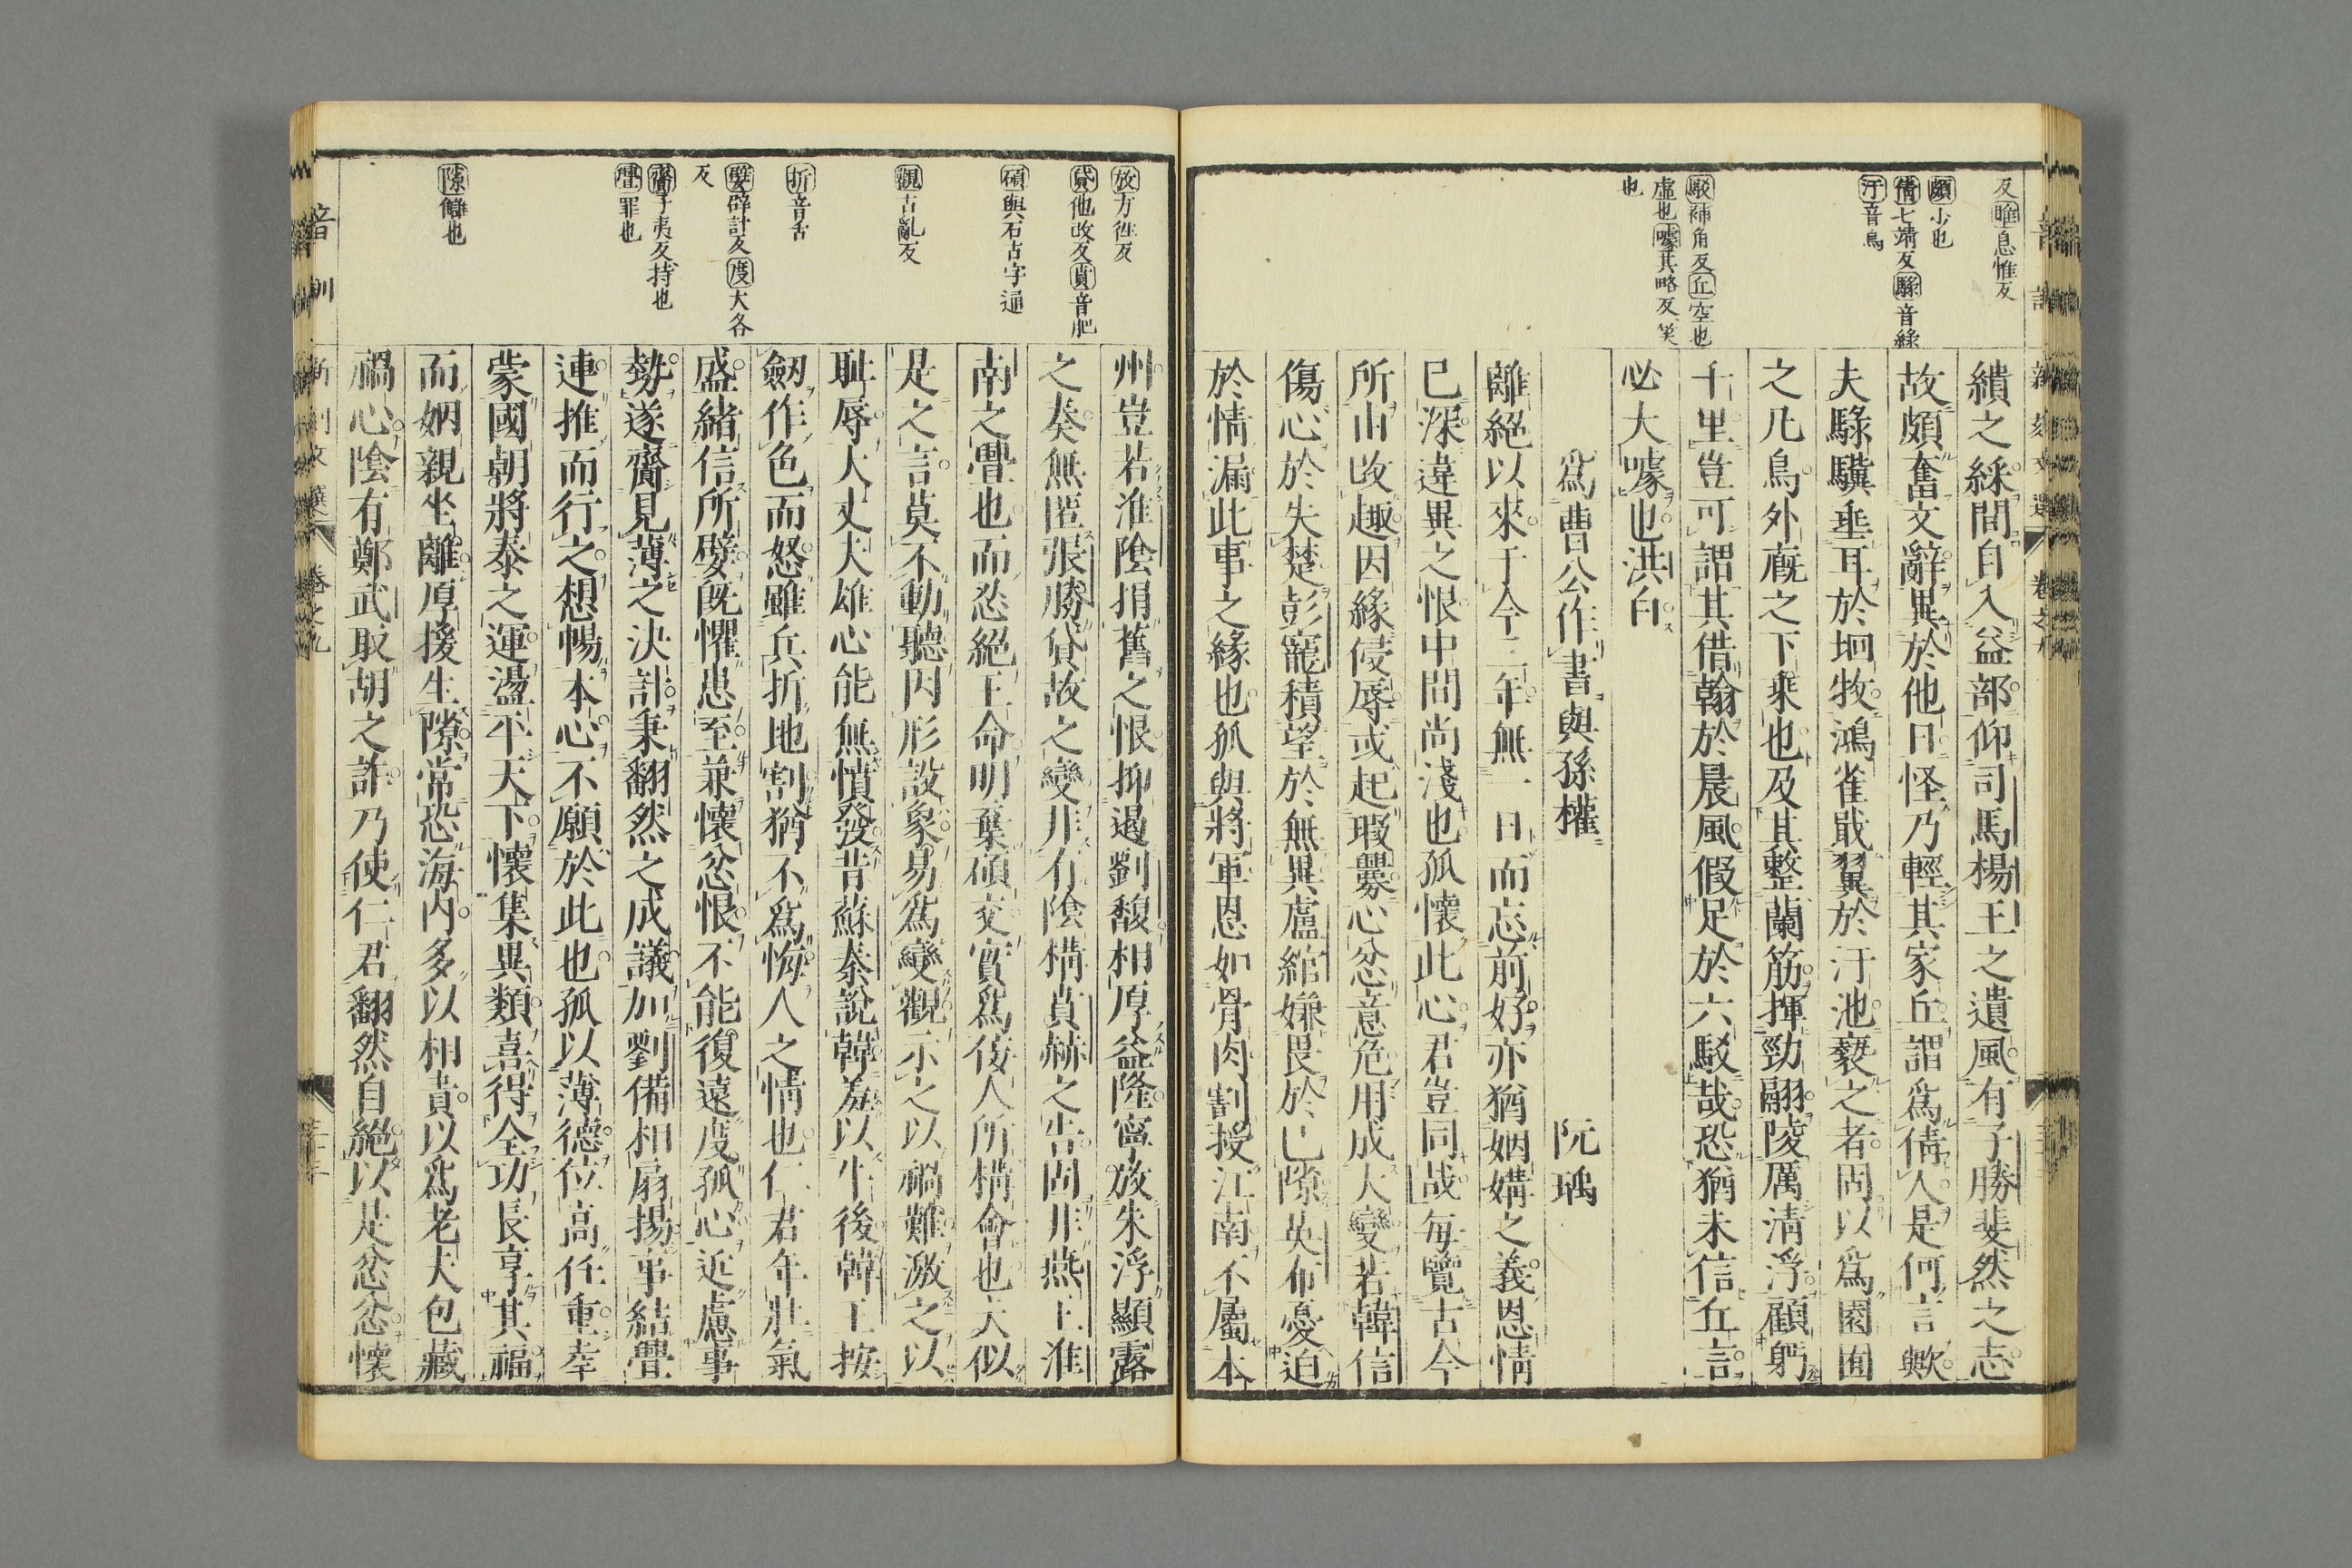 反睢息惟反
頗少也
倩七靖反騄音綠
汙音烏
駮補角反丘空也
虛也噱其略反笑
也
繢之綵間自入益部仰司馬楊王之遺風有子勝斐然之志
故頗奮文辭異於他日怪乃輕其家丘謂爲倩人是何言歟
夫騄驥垂耳於坰牧鴻雀戢翼於汙池褻之者固以爲園囿
之凡鳥外廐之下乘也及其整蘭筋揮勁翮陵厲清浮顧眄
千里豈可謂其借翰於晨風假足於六駮哉恐猶未信丘言
必大噱也洪白
爲曹公作書與孫權 阮瑀
離絕以來于今三年無一日而忘前好亦猶姻媾之義恩情
已深違異之恨中間尚淺也孤懷此心君豈同哉每覽古今
所由改趣因緣侵辱或起瑕釁心忿意危用成大變若韓信
傷心於失楚彭寵積望於無異盧綰嫌畏於已隙英布憂迫
於情漏此事之緣也孤與將軍恩如骨肉割授江南不屬本
放方往反
貸他改反賁音肥
碩與石古字通
觀古亂反
折音舌
嬖辟計反度大各
反
齎子夷反持也
舋罪也
隙讎也
州豈若淮陰捐舊之恨抑遏劉馥相厚益隆寧放朱浮顯露
之奏無匿張勝貸故之變非有陰構賁赫之告固非燕王淮
南之舋也而忍絕王命明棄碩交實爲佞人所構會也夫似
是之言莫不動聽因形設象易爲變觀示之以禍難激之以
耻辱大丈夫雄心能無憤發昔蘇秦說韓羞以牛後韓王按
劒作色而怒雖兵折地割猶不爲悔人之情也仁君年壯氣
盛緒信所嬖旣懼患至兼懷忿恨不能復遠度孤心近慮事
勢遂齎見薄之決計秉翻然之成議加劉備相扇揚事結舋
連推而行之想暢本心不願於此也孤以薄德位高任重幸
蒙國朝將泰之運盪平天下懷集異類喜得全功長享其福
而姻親坐離厚援生隙常恐海內多以相責以爲老夫包藏
禍心陰有鄭武取胡之詐乃使仁君翻然自絕以是忿忿懷
音訓
卷之九